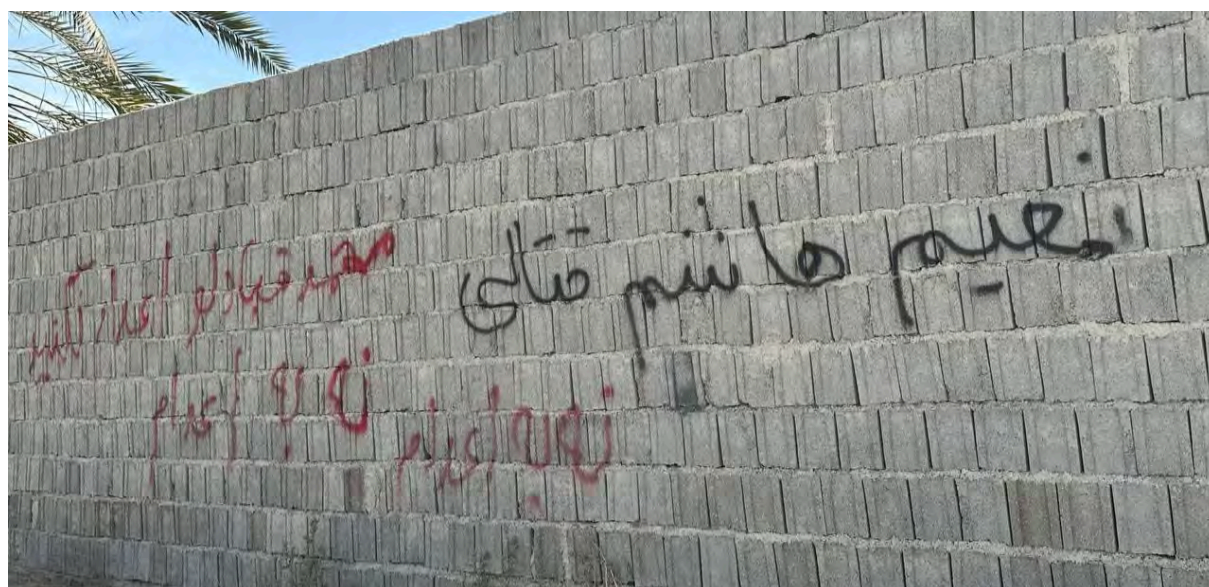 نعیم هاشم قتالی
محمد قبادلو اعدام نکنید
نه به اعدام
نه به اعدام